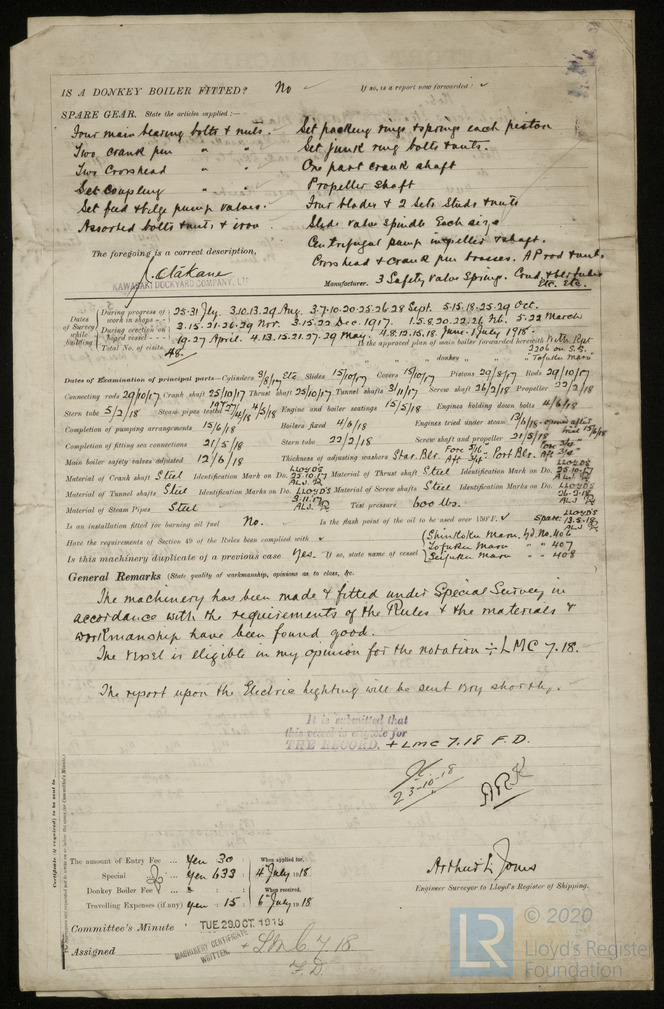 IS A DONKEY BOILER FITTED? No If so, is a report now forwarded?
SPARE GEAR. State the articles supplied:—
Four main bearing bolts & nuts. Set packing rings & springs each piston
Two crank pin " " Set junk ring bolts & nuts.
Two Crosshead " " One part crank shaft
Set coupling " " Propeller shaft
Set feed & bilge pump valves. Four blades & 2 Sets Studs & nuts
Assorted bolts & nuts & iron. Slide valve spindle Each size
Centrifugal pump impeller & shaft.
The foregoing is a correct description, Crosshead & Crank pin brasses. A P rod & nut.
KAWASAKI DOCKYARD COMPANY, LTD Manufacturer. 3 Safety valve Spring. Cond. & blr tubes
Etc. Etc.
Dates of Survey while building
During progress of work in shops - - 25-31 Jly. 3.10.13.29 Aug. 3.7.10.20.25.26.28 Sept. 5.15.18.25.29 Oct.
During erection on board vessel - - - 3.15.21.26.29 Nov. 3.15.22 Dec. 1917. 1.5.8.20.22.26 Feb. 5.22 March
19.27 April. 4.13.15.21.27.29 May. 4.8.12.15.18 June. 1 July 1918.
Total No. of visits 48. Is the approved plan of main boiler forwarded herewith With Rpt
" " " donkey " " " 2206 on S.S. "Tofuku Maru"
Dates of Examination of principal parts—Cylinders 3/8/17 Etc Slides 15/10/17 Covers 15/10/17 Pistons 29/8/17 Rods 29/10/17
Connecting rods 29/10/17 Crank shaft 25/10/17 Thrust shaft 25/10/17 Tunnel shafts 3/11/17 Screw shaft 26/2/18 Propeller 22/2/18
Stern tube 5/2/18 Steam pipes tested Engine and boiler seatings 15/5/18 Engines holding down bolts 4/6/18
Completion of pumping arrangements 15/6/18 Boilers fixed 4/6/18 Engines tried under steam opened after
Completion of fitting sea connections 21/5/18 Stern tube 22/2/18 Screw shaft and propeller 21/5/18
Main boiler safety valves adjusted 12/6/18 Thickness of adjusting washers Star. Blr. Fore 5/16 Aft 3/16 Port Blr.
Material of Crank shaft Steel Identification Mark on Do. LLOYD'S 25.10.17 ALJ. Material of Thrust shaft Steel Identification Mark on Do. LLOYD'S 25.10.17 ALJ.
Material of Tunnel shafts Steel Identification Marks on Do. LLOYD'S 3.11.17 ALJ. Material of Screw shafts Steel Identification Marks on Do. LLOYD'S 26.2.18 ALJ.
Material of Steam Pipes Steel Test pressure 600 lbs.
Is an installation fitted for burning oil fuel No. Is the flash point of the oil to be used over 150°F. Spare. LLOYD'S 13.5.18 ALJ.
Have the requirements of Section 49 of the Rules been complied with
Is this machinery duplicate of a previous case Yes. If so, state name of vessel Shinkoku Maru Yd. No. 406
Tofuku Maru " " 407
Seifuku Maru " " 408
General Remarks (State quality of workmanship, opinions as to class, &c.
The machinery has been made & fitted under Special Survey in
accordance with the requirements of the Rules & the materials &
workmanship have been found good.
The vessel is eligible in my opinion for the notation LMC 7.18.
The report upon the Electric Lighting will be sent you shortly.
It is submitted that
this vessel is eligible for
THE RECORD. + LMC 7.18 F.D.
23-10-18
The amount of Entry Fee ... Yen 30 When applied for,
Special ... Yen 633 4th July 1918
Donkey Boiler Fee ... When received,
Travelling Expenses (if any) Yen : 15 6th July 1918
Arthur L Jones
Engineer Surveyor to Lloyd's Register of Shipping.
Committee's Minute TUE. 29 OCT. 1918
Assigned + LMC 7.18
F.D.
MACHINERY CERTIFICATE
WRITTEN.
Certificate (if required) to be sent to
© 2020
LR
Lloyd's Register
Foundation